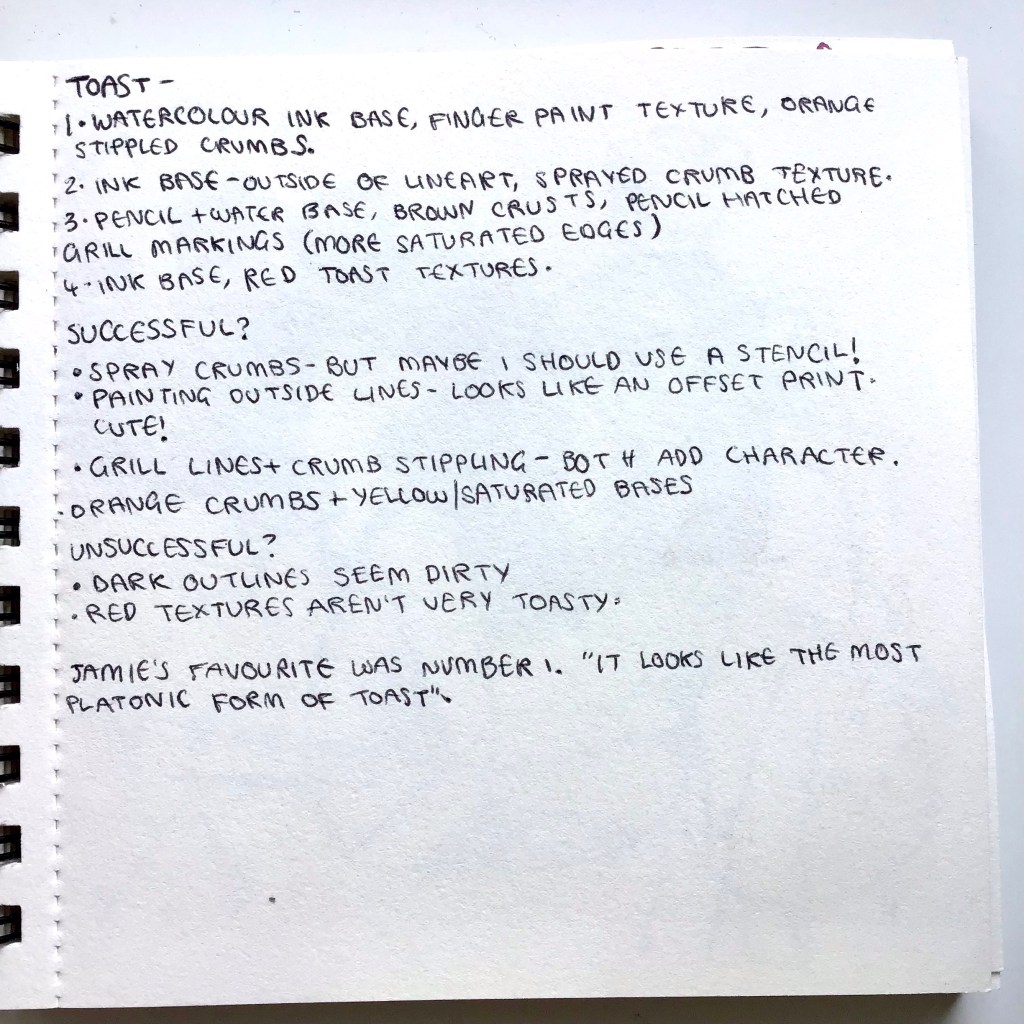 TOAST -
1. WATERCOLOUR INK BASE, FINGER PAINT TEXTURE, ORANGE
STIPPLED CRUMBS.
2. INK BASE - OUTSIDE OF LINEART, SPRAYED CRUMB TEXTURE.
3. PENCIL + WATER BASE, BROWN CRUSTS, PENCIL HATCHED
GRILL MARKINGS (MORE SATURATED EDGES)
4. INK BASE, RED TOAST TEXTURES.
SUCCESSFUL?
• SPRAY CRUMBS - BUT MAYBE I SHOULD USE A STENCIL!
• PAINTING OUTSIDE LINES - LOOKS LIKE AN OFFSET PRINT.
CUTE!
• GRILL LINES + CRUMB STIPPLING - BOTH ADD CHARACTER.
• ORANGE CRUMBS + YELLOW/SATURATED BASES
UNSUCCESSFUL?
• DARK OUTLINES SEEM DIRTY
• RED TEXTURES AREN'T VERY TOASTY.
JAMIE'S FAVOURITE WAS NUMBER 1. "IT LOOKS LIKE THE MOST
PLATONIC FORM OF TOAST".